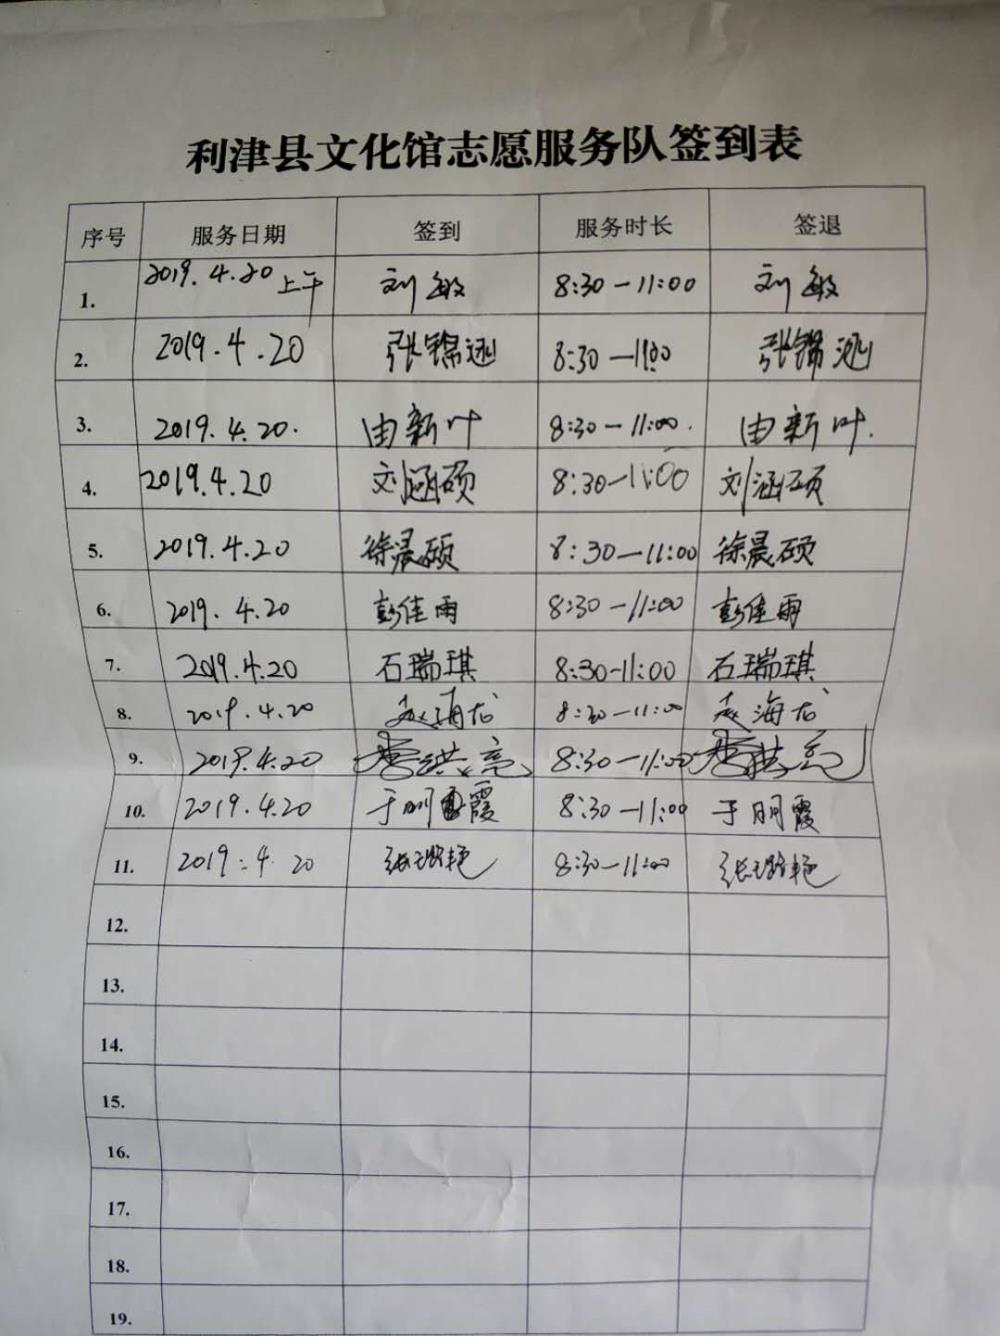 利津县文化馆志愿服务队签到表
序号 服务日期 签到 服务时长 签退
1. 2019.4.20上午 刘敏 8:30-11:00 刘敏
2. 2019.4.20 张锦逊 8:30-11:00 张锦逊
3. 2019.4.20. 由新叶 8:30-11:00. 由新叶.
4. 2019.4.20 刘涵硕 8:30-11:00 刘涵硕
5. 2019.4.20 徐晨硕 8:30-11:00 徐晨硕
6. 2019.4.20 彭佳雨 8:30-11:00 彭佳雨
7. 2019.4.20 石瑞琪 8:30-11:00 石瑞琪
8. 2019.4.20 赵海龙 8:30-11:00 赵海龙
9. 2019.4.20 李洪亮 8:30-11:00 李洪亮
10. 2019.4.20 于明霞 8:30-11:00 于明霞
11. 2019.4.20 8:30-11:00
12.
13.
14.
15.
16.
17.
18.
19.